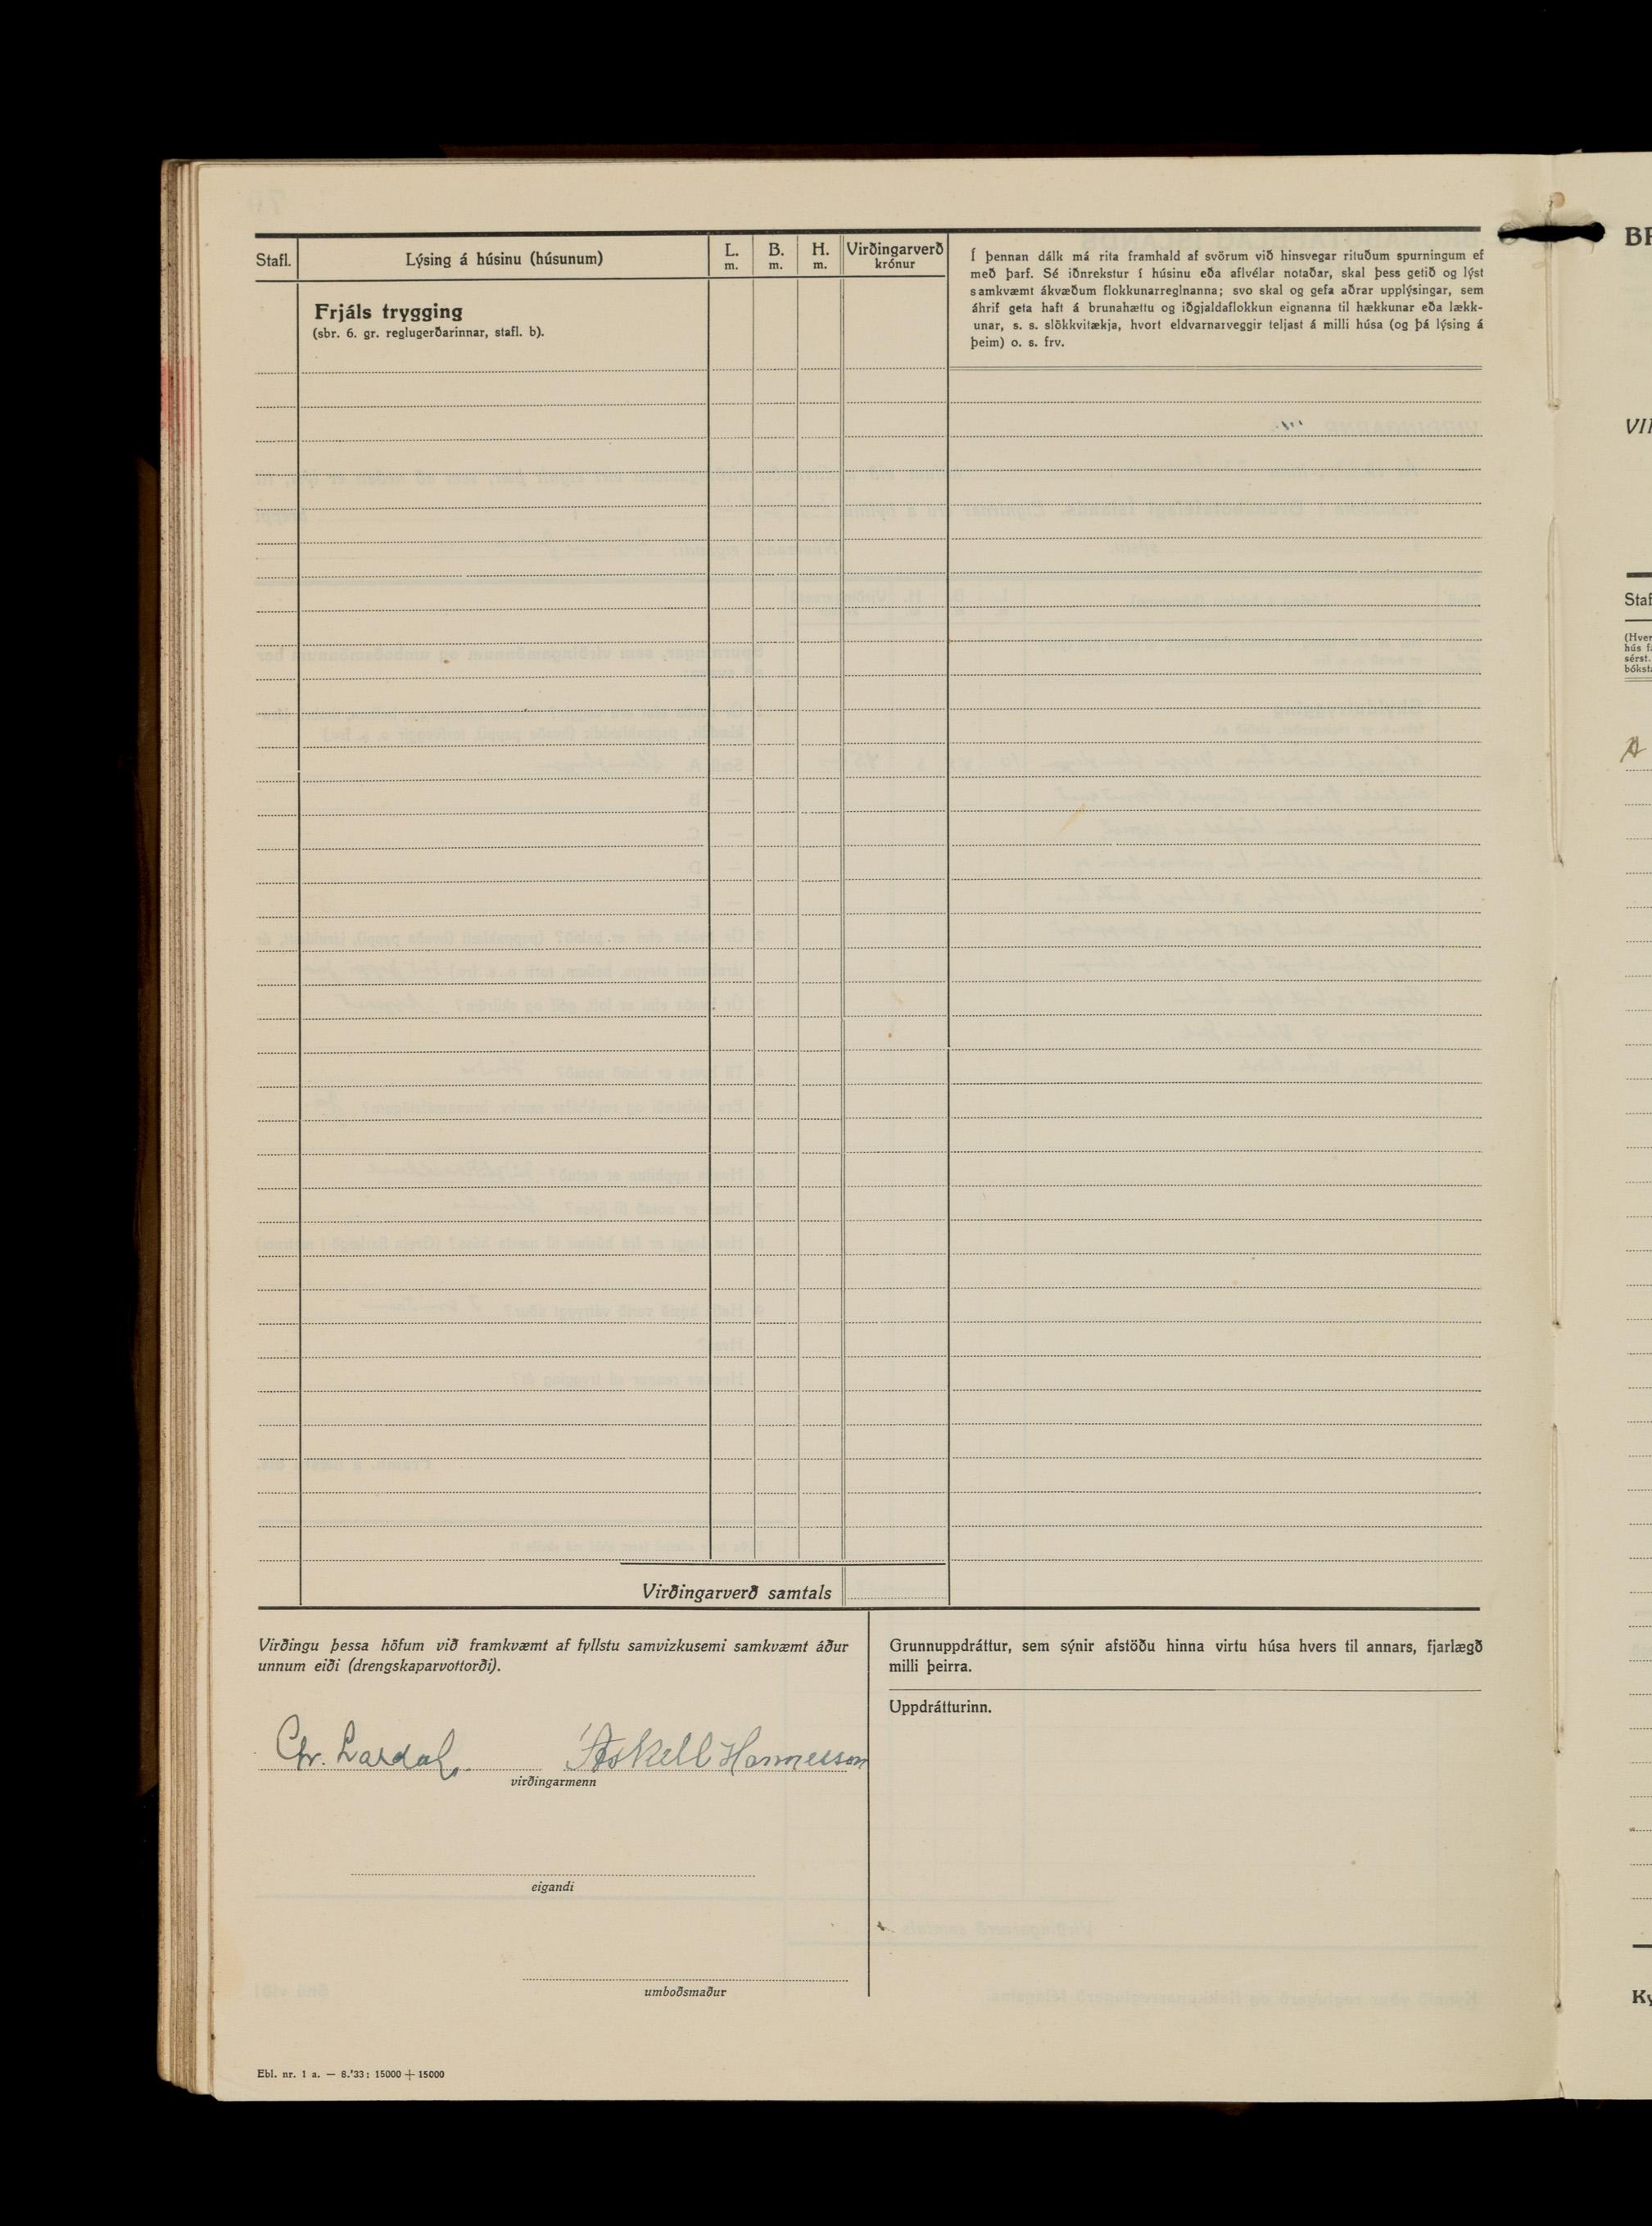 Stafl.
Lýsing á húsinu (húsunum)
L.
m.
B.
m.
H.
m.
Virðingarverð
krónur
Í þennan dálk má rita framhald af svörum við hinsvegar rituðum spurningum ef
með þarf. Sé iðnrekstur í húsinu eða aflvélar notaðar, skal þess getið og lýst
samkvæmt ákvæðum flokkunarreglnanna; svo skal og gefa aðrar upplýsingar, sem
áhrif geta haft á brunahættu og iðgjaldaflokkun eignanna til hækkunar eða lækk-
unar, s. s. slökkvitækja, hvort eldvarnarveggir teljast á milli húsa (og þá lýsing á
þeim) o. s. frv.
Frjáls trygging
(sbr. 6. gr. reglugerðarinnar, stafl. b).
Virðingarverð samtals
Virðingu þessa höfum við framkvæmt af fyllstu samvizkusemi samkvæmt áður
unnum eiði (drengskaparvottorði).
Chr. Lardal. Áskell Hannesson
virðingarmenn
eigandi
umboðsmaður
Grunnuppdráttur, sem sýnir afstöðu hinna virtu húsa hvers til annars, fjarlægð
milli þeirra.
Uppdrátturinn.
Ebl. nr. 1 a. — 8.'33: 15000 + 15000
VII
Staf
(Hver
hús f
sérst.
bókst
A
Ky